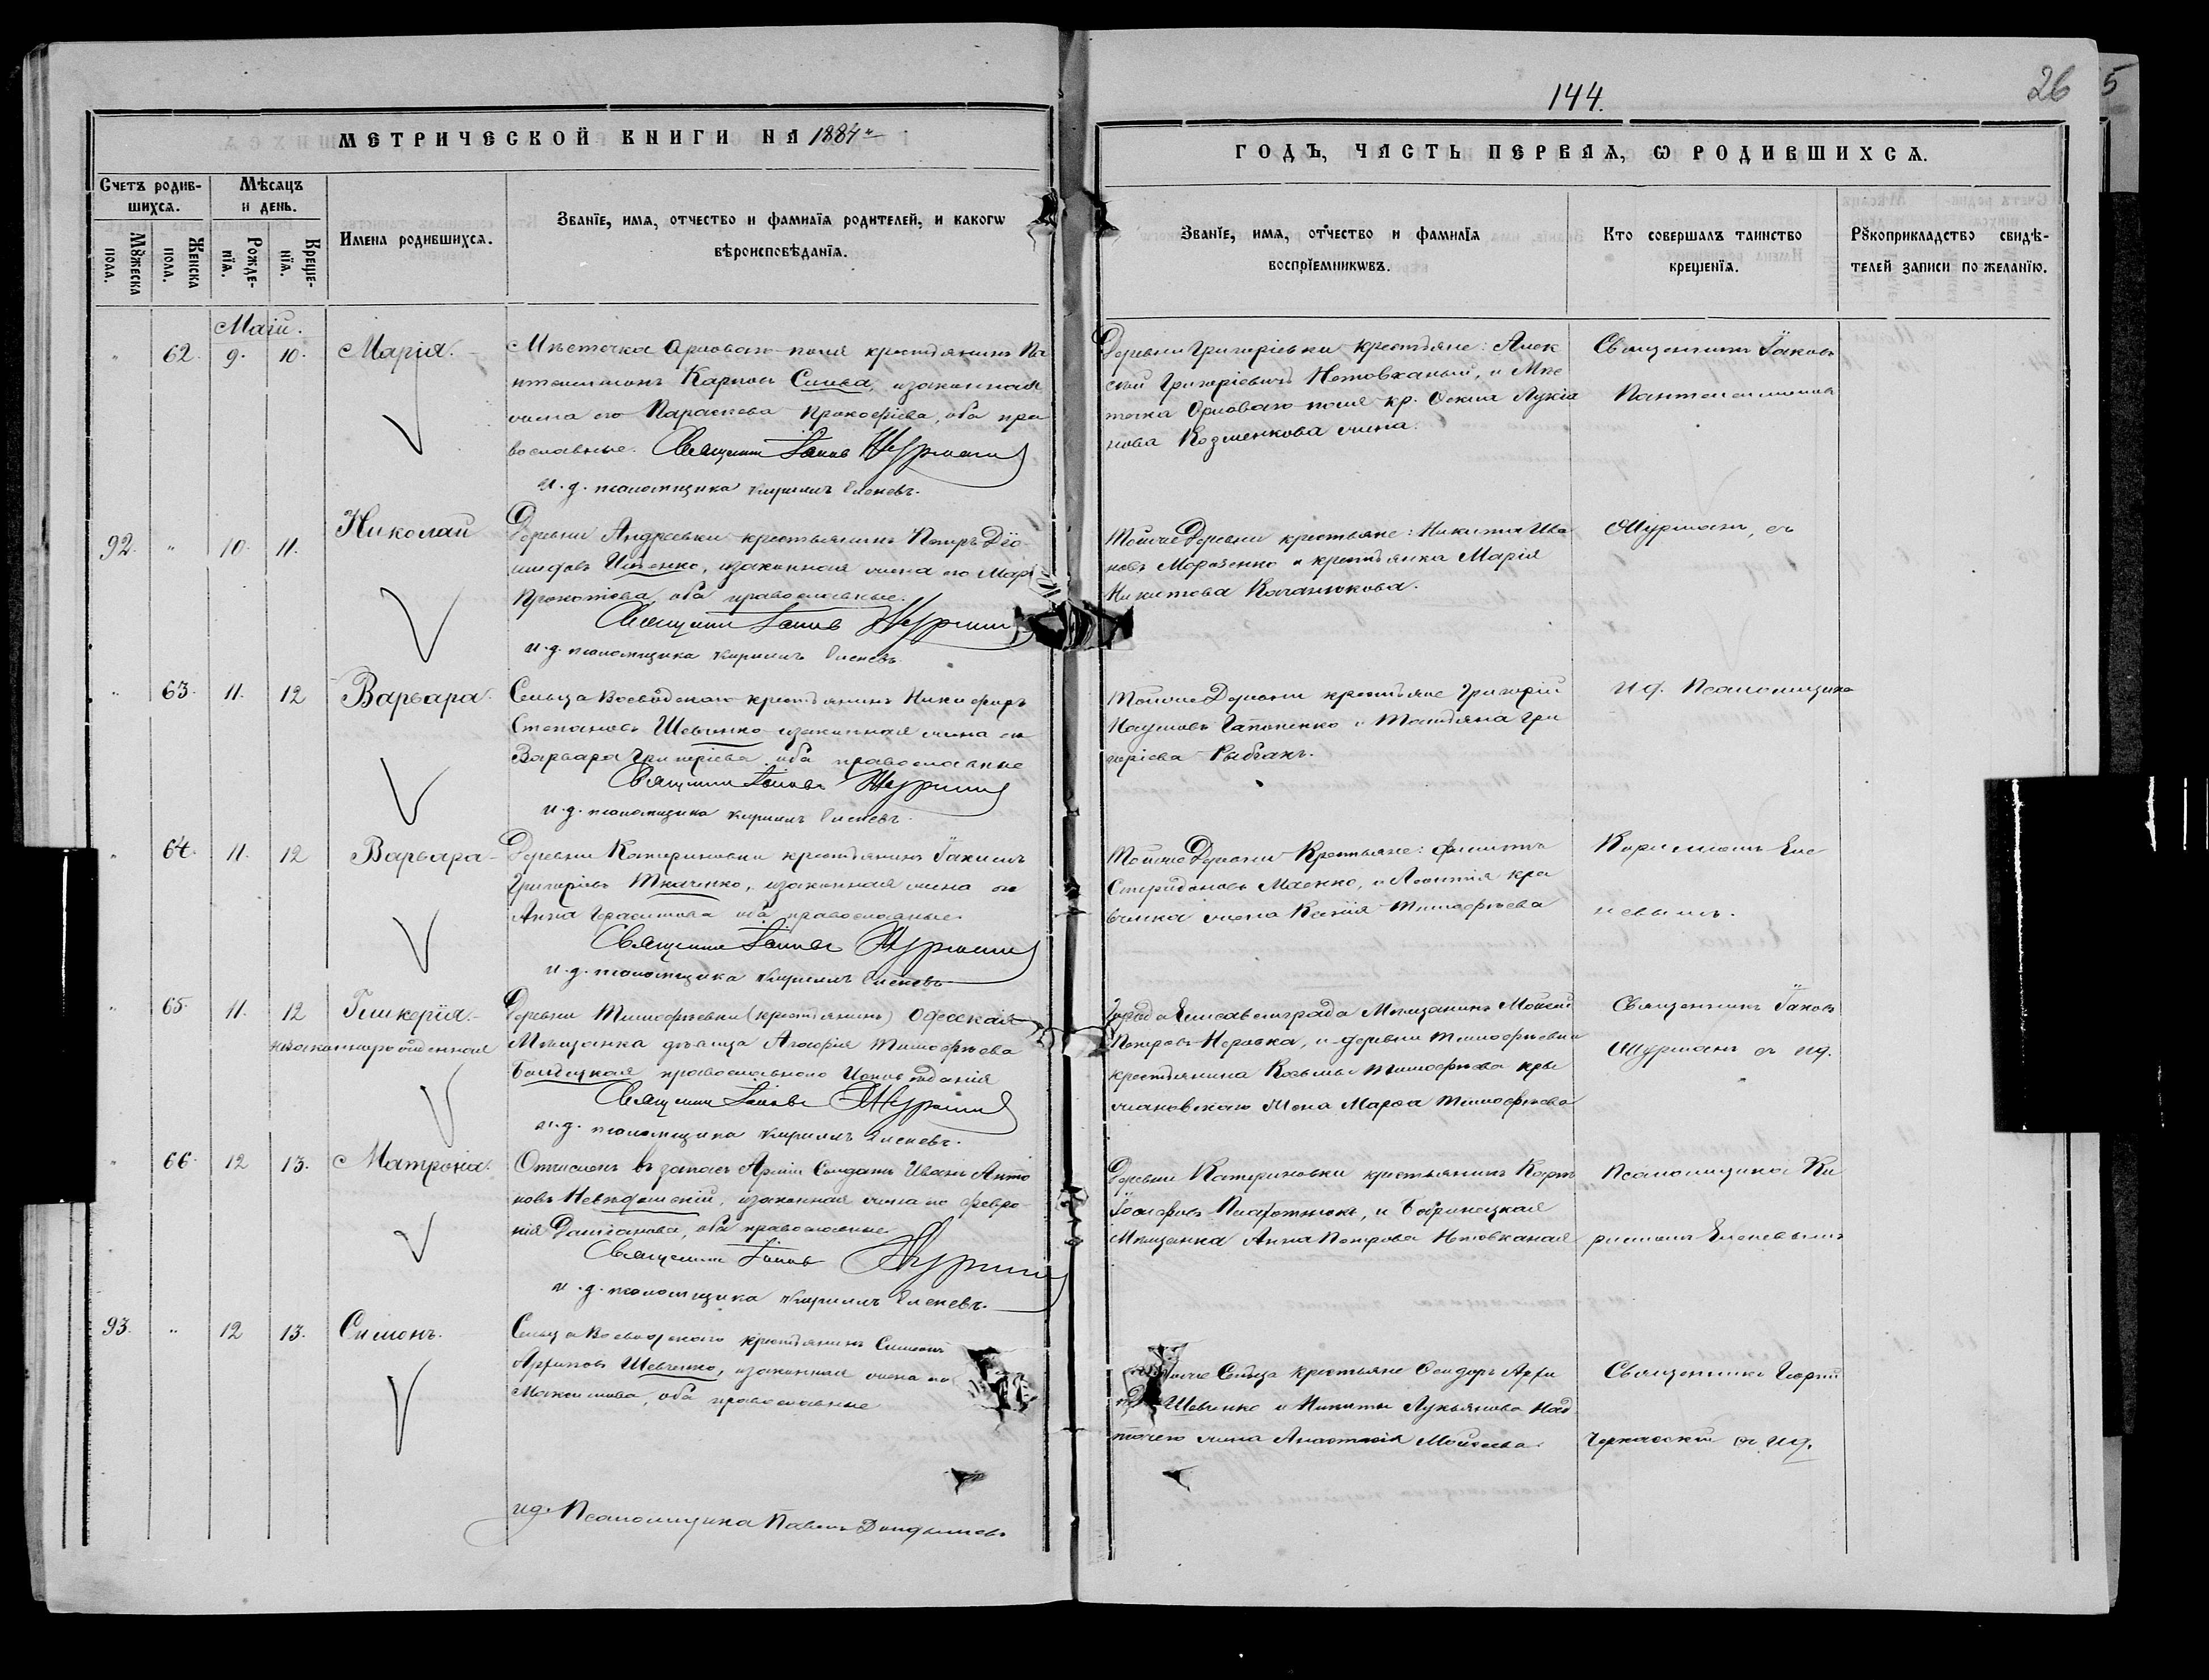 144.
26
5
МЕТРИЧЕСКОЙ КНИГИ НА 1884й
ГОДЪ, ЧАСТЬ ПЕРВАЯ, Ѡ РОДИВШИХСѦ.
Счетъ родив-
шихсѧ.
Мѣсѧцъ
и день.
Мꙋжеска
пола.
Женска
пола.
Рожде-
нїѧ.
Креще-
нїѧ.
Имена родившихсѧ.
Званїе, имѧ, отчество и фамилїѧ родителей, и какогѡ
вѣроисповѣданїѧ.
Званїе, имѧ, отчество и фамилїѧ
воспрїемникѡвъ.
Кто совершалъ таинство
крещенїѧ.
Рꙋкоприкладство свидѣ-
телей записи по желанїю.
Маій.
" 62. 9. 10. Марія.
Мѣстечка Арнова поля крестьянинъ Па
нтелимонъ Карповъ Слива, изаконная
жена его Параскева Прокофіева, оба пра
вославные. Священникъ Іаковъ Шурманъ
и.д. псаломщика Кириллъ Еленевъ.
Деревни Григоріевки крестьяне: Алек
сѣй Григоріевичъ Нетовканый, и Мѣс
течка поля кр. Лукіа
нова Козленкова жена.
Священникъ Іаковъ
92. " 10. 11. Николай
Деревни Андреевки крестьянинъ Петръ Діо
мидовъ Ищенко, изаконная жена его Марія
оба православные.
Священникъ Іаковъ Шурманъ
и.д. псаломщика Кириллъ Еленевъ.
Тойже Деревни крестьяне: Никита Ива
новъ Морозенко и крестьянка Марія
Никитова Каганюкова.
Шурманъ, съ
" 63. 11. 12 Варвара.
Сельца Воеводскаго крестьянинъ Никифоръ
Степановъ Шевченко изаконная жена его
Варвара Григоріева оба православные
Священникъ Іаковъ Шурманъ
и.д. псаломщика Кириллъ Еленевъ.
Тойже Деревни крестьяне Григорій
Наумовъ Гапоненко и Татіяна Гри
горіева Рыбакъ.
и.д. Псаломщика
" 64. 11. 12 Варвара
Деревни Катериновки крестьянинъ Іакимъ
Григоріевъ Ткаченко, изаконная жена его
Анна Герасимова оба православные.
Священникъ Іаковъ Шурманъ
и.д. псаломщика Кириллъ Еленевъ
Тойже Деревни Крестьяне: Филиппъ
Спиридоновъ Маенко, и Леонтія Кра
жена Ксенія Тимофѣева
Кирилломъ Еле
невымъ.
" 65. 11. 12 Гликерія.
незаконнорожденная
Деревни Тимофѣевки (крестьянинъ) Одесская
Мѣщанка дѣвица Агафія Тимофѣева
православнаго Исповѣданія
Священникъ Іаковъ Шурманъ
и.д. псаломщика Кириллъ Еленевъ.
Города Елисаветграда Мѣщанинъ Мойсей
Петровъ и деревни Тимофѣевки
крестьянина Козьмы Тимофѣева Кры
жановскаго Жена Марѳа Тимофѣева
Священникъ Іаковъ
Шурманъ съ и.д.
" 66. 12 13. Матрона.
Отчислен. въ запасъ Арміи Солдатъ Иванъ Анто
новъ изаконная жена его Февро
нія Даміанова, оба православные
Священникъ Іаковъ Шурманъ
и.д. псаломщика Кириллъ Еленевъ.
Деревни Катериновки крестьянинъ Карпъ
Іосифовъ и Бобринецкая
Мѣщанка Анна Петрова Нетовканая
Псаломщика Ки
рилломъ Еленевымъ
93. " 12 13. Симонъ.
Сельца Воеводскаго крестьянинъ Симеонъ
Архиповъ Шевченко, изаконная жена его
Максимова, оба православные
и.д. Псаломщика Павелъ
Тогоже Сельца крестьяне Сидоръ Архи
Шевченко и Никиты Лукьянова Над
точего жена Анастасія Мойсеева.
Священникъ Георгій
Черкасскій съ и.д.